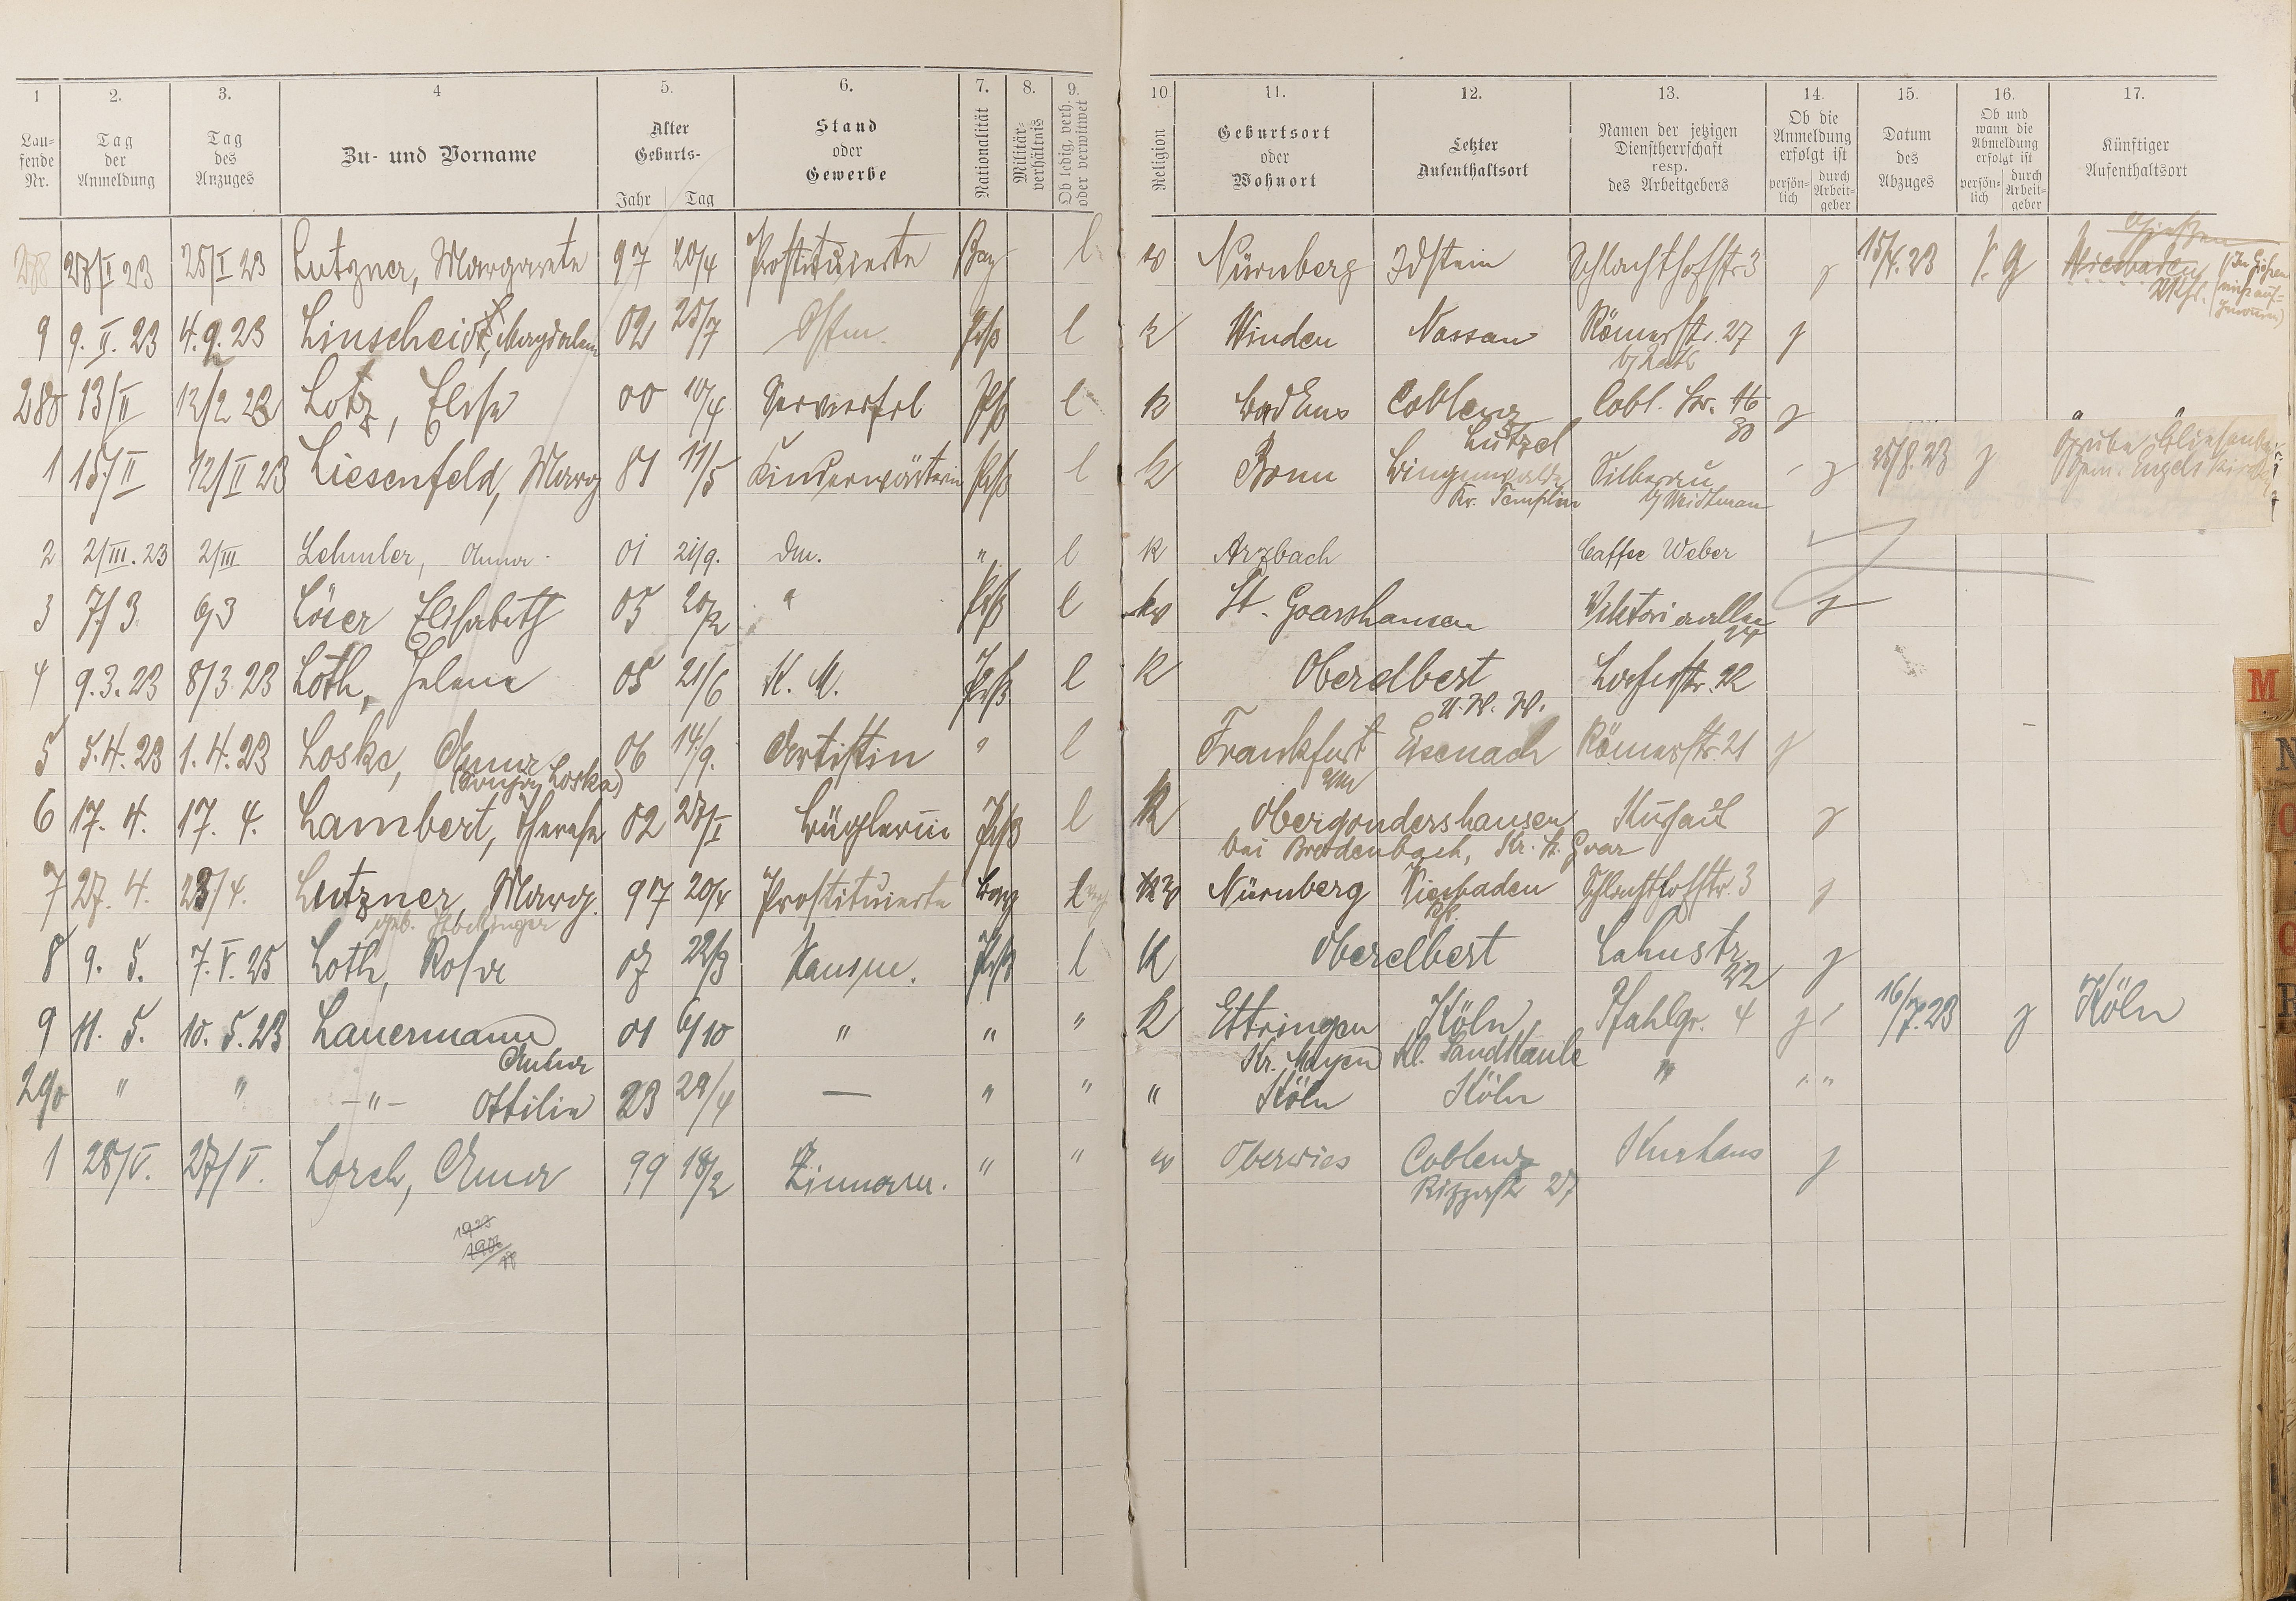 1 2. 3. 4 5. 6. 7. 8. 9. 10 11. 12. 13. 14. 15. 16. 17.
Lau-
fende
Nr.
Tag
der
Anmeldung
Tag
des
Anzuges
Zu- und Vorname
Alter
Geburts-
Jahr Tag
Stand
oder
Gewerbe
Nationalität
Militär-
verhältnis
Ob ledig, verh.
oder verwitwet
Religion
Geburtsort
oder
Wohnort
Letzter
Aufenthaltsort
Namen der jetzigen
Dienstherrschaft
resp.
des Arbeitgebers
Ob die
Anmeldung
erfolgt ist
persön-
lich
durch
Arbeit-
geber
Datum
des
Abzuges
Ob und
wann die
Abmeldung
erfolgt ist
persön-
lich
durch
Arbeit-
geber
Künftiger
Aufenthaltsort
278 27/I 23 25/I 23 Lutzner, Margarete 97 20/4 Prostituierte Bay l ev Nürnberg Idstein Schlachthofstr 3 g 15/4.23 Gießen
Wiesbaden
9 9. II. 23 4. 9. 23 Linscheid, Magdalena 02 25/7 Prß l k Winden Nassau Römerstr. 27 g
280 13/II 12/2 23 Lotz, Elise 00 10/4 Servierfrl Prß l k Bad Ems Coblenz Cobl. Str. 46 g
Lützel 80
1 15/II 12/II 23 Liesenfeld, Marg 81 11/5 Kinderwärterin Prß l k Bonn Ringenwalde Silberau g 25/8. 23 g Grube
Kr. Templin Gem. Engelskirchen
2 2/III. 23 2/III Lehmler, Anna 01 21/9. Dm. " l k Arzbach Caffee Weber
3 7/3. 6/3 Löer Elisabeth 05 20/2 " Prß l ev St. Goarshausen Viktoriaallee g
4 9. 3. 23 8/3 23 Loth, Helene 05 21/6 K. M. Prß l k Oberelbert 22
U. W. W.
5 5. 4. 23 1. 4. 23 Loske, Anna 06 14/9. Artistin " l Frankfurt Eisenach Römerstr. 21 g
(Sonja Loska) a/M
6 17. 4. 17. 4. Lambert, Therese 02 Büglerin Prß l k Obergondershausen Kurhaus g
bei Brodenbach, Kr. St. Goar
7 27. 4. 23/4. Lutzner Marg. 97 20/4 Prostituierte Bay ev Nürnberg Wiesbaden Schlachthofstr. 3 g
geb.
8 9. 5. 7. V. 25 Loth, Rosa 07 22/3 Hausm. Prß l k Oberelbert Lahnstr. g
22
9 11. 5. 10. 5. 23 Lauermann 01 6/10 " " " k Ettringen Köln Pfahlgr. 4 g 16/7. 23 g Köln
Anna Kr. Mayen Kl. Sandkaule
290 " " - " - Ottilie 23 — " " " Köln Köln " "
1 28/V. 27/V. Lorch, Anna 99 18/2 Zimmerm. " " ev Oberwies Coblenz Kurhaus g
Rizzastr 27
1923
M